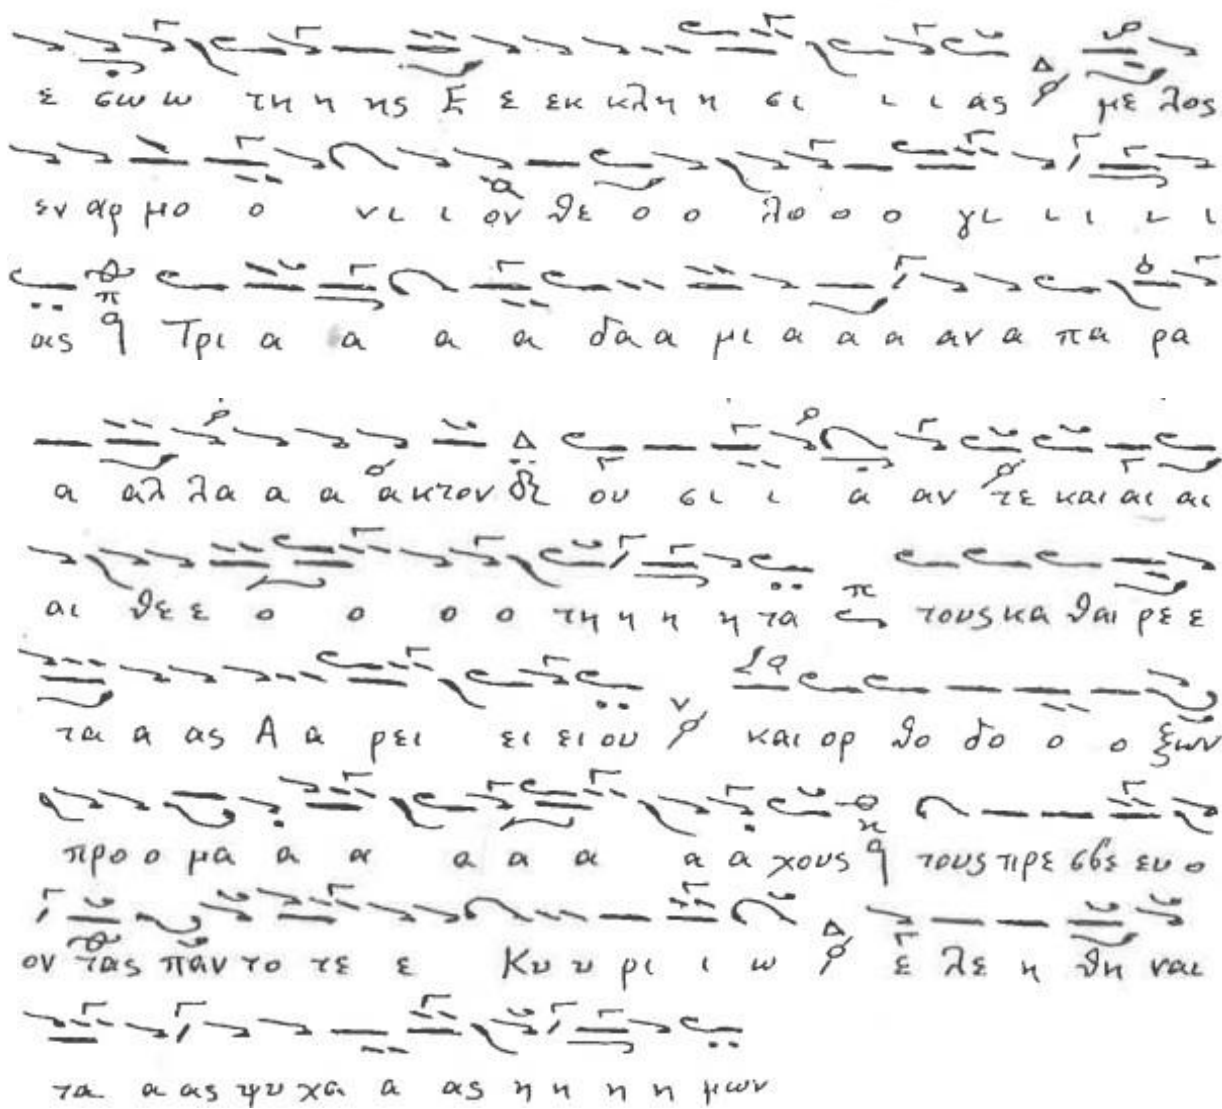 ε σω ω τη η ης Ε ε εκ κλη η σι ι ι ας Δ με λος
εν αρ μο ο νι ι ον θε ο ο λο ο ο γι ι ι ι
ας π α Τρι α α α α δα α μι α α α αν α πα ρα
α αλ λα α α α κτον Δι ου σι ι α αν τε και αι αι
αι θε ε ο ο ο ο τη η η η τα π τους κα θαι ρε ε
τα α ας Α α ρει ει ει ου ν και ορ θο δο ο ο ξων
προ ο μα α α α α α α α χους τους πρε σβε ευ ο
ον τας παν το τε ε Κυ υ ρι ι ω Δ ε λε η θη ναι
τα α ας ψυ χα α ας η η η η μων